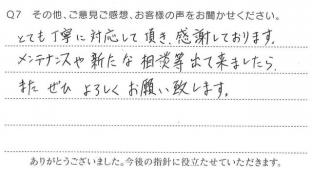 Q7 その他、ご意見ご感想、お客様の声をお聞かせください。
とても丁寧に対応して頂き、感謝しております。
メンテナンスや新たな相談等出て来ましたら、
また ぜひ よろしく お願い致します。
ありがとうございました。今後の指針に役立たせていただきます。